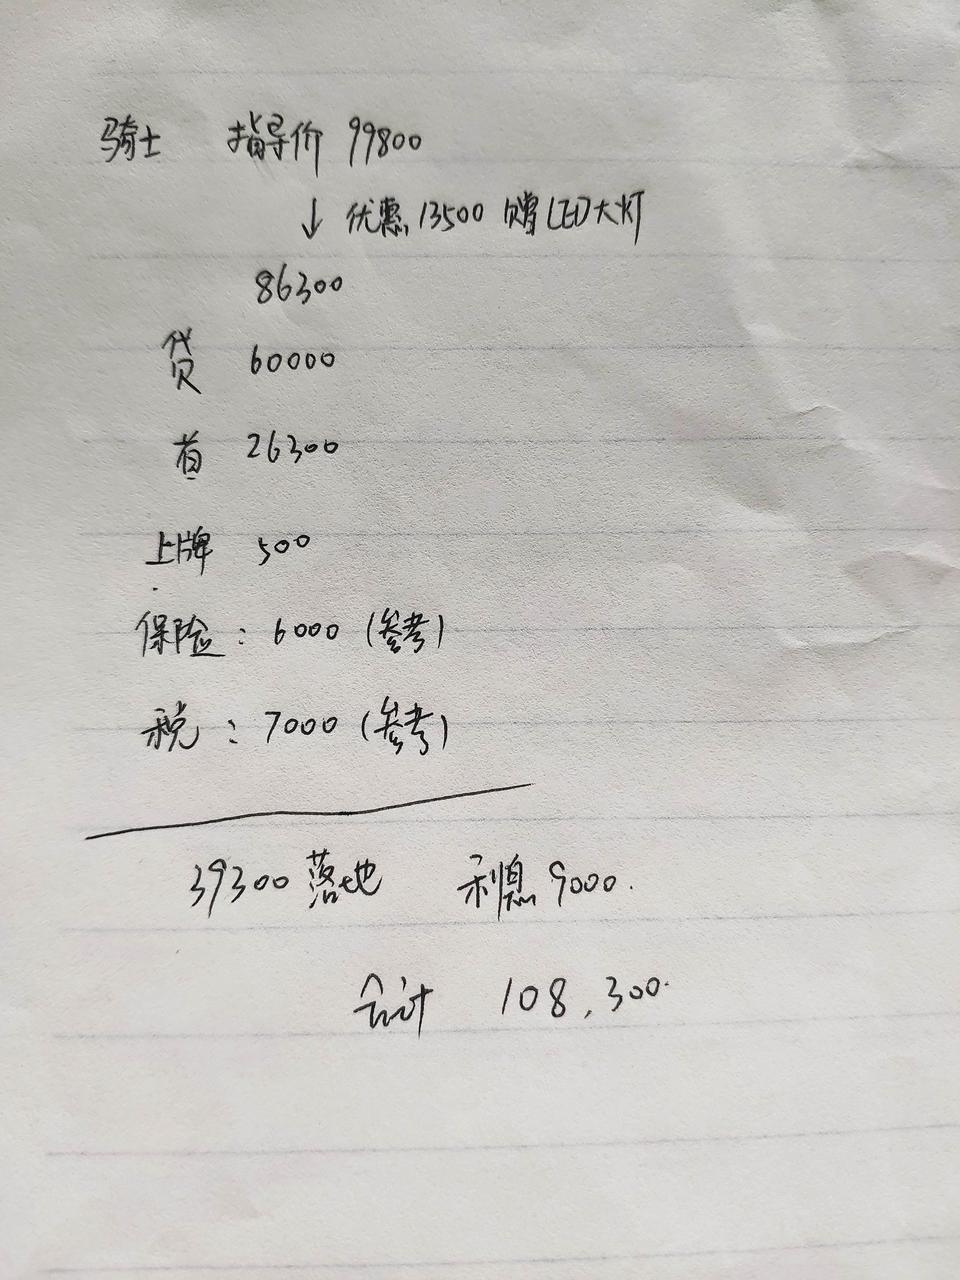 骑士 指导价 99800
↓ 优惠 13500 赠LED大灯
86300
贷 60000
首 26300
上牌 500
保险：6000（参考）
税：7000（参考）
39300落地 利息9000.
合计 108,300.